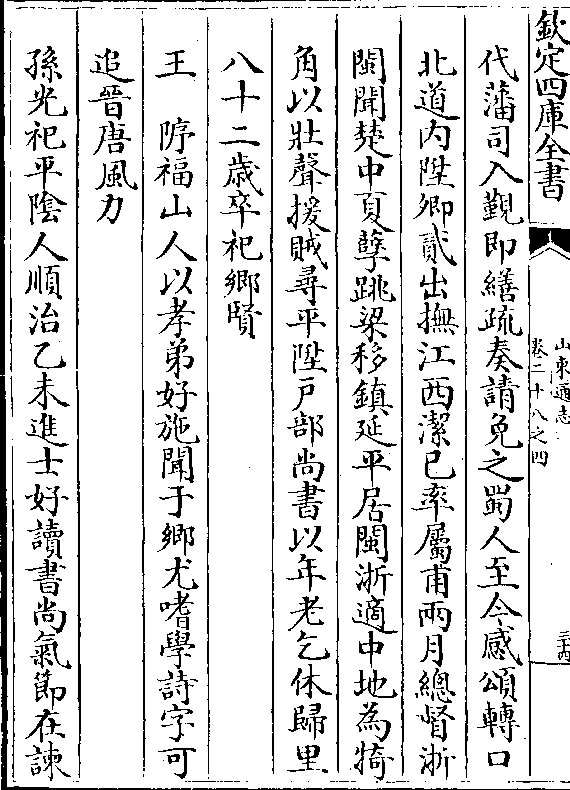 欽定四庫全書
山東通志
卷二十八之四
三十四
代藩司入覲即繕疏奏請免之蜀人至今感頌轉口
北道内陞卿貳出撫江西潔已率屬甫兩月總督浙
閩聞楚中夏孽跳梁移鎮延平居閩浙適中地為犄
角以壯聲援賊尋平陞戸部尚書以年老乞休歸里
八十二歳卒祀鄉賢
王　㝛福山人以孝弟好施聞于鄉尤嗜學詩字可
追晉唐風力
孫光祀平陰人順治乙未進士好讀書尚氣節在諫